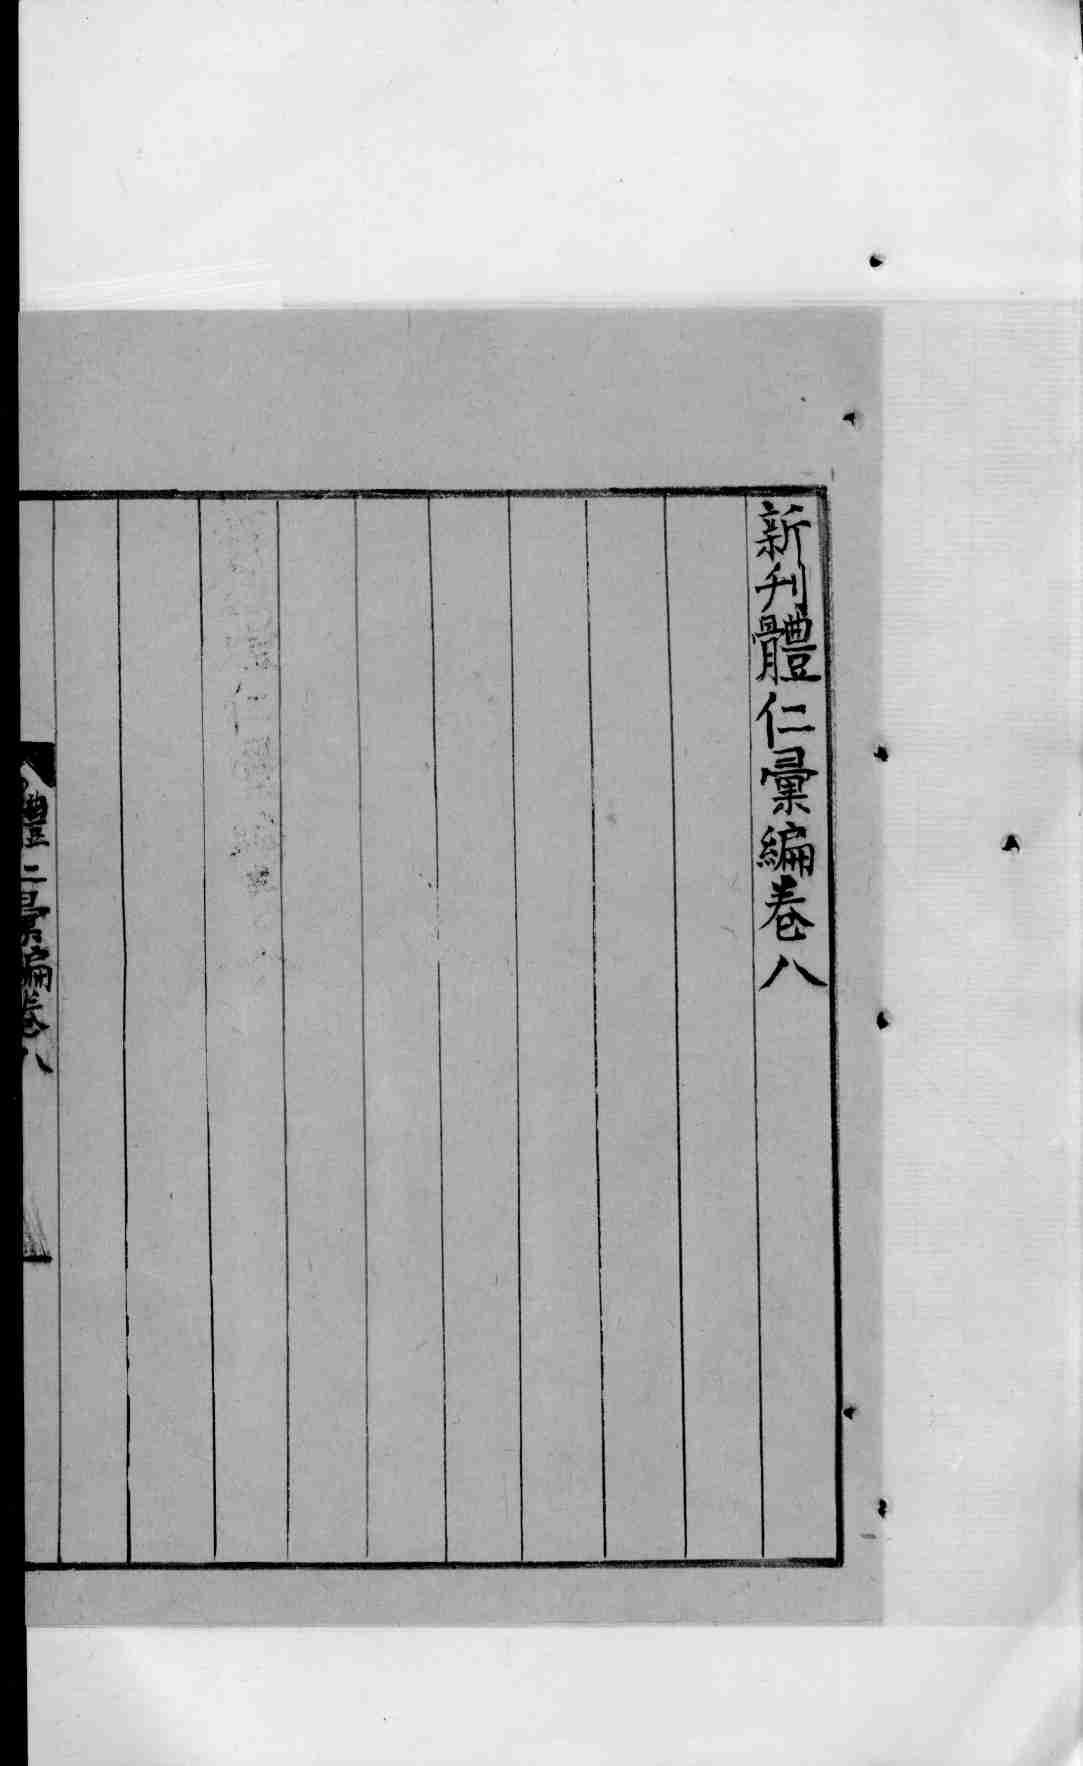 新刋體仁彙編卷八
體仁彙編卷八